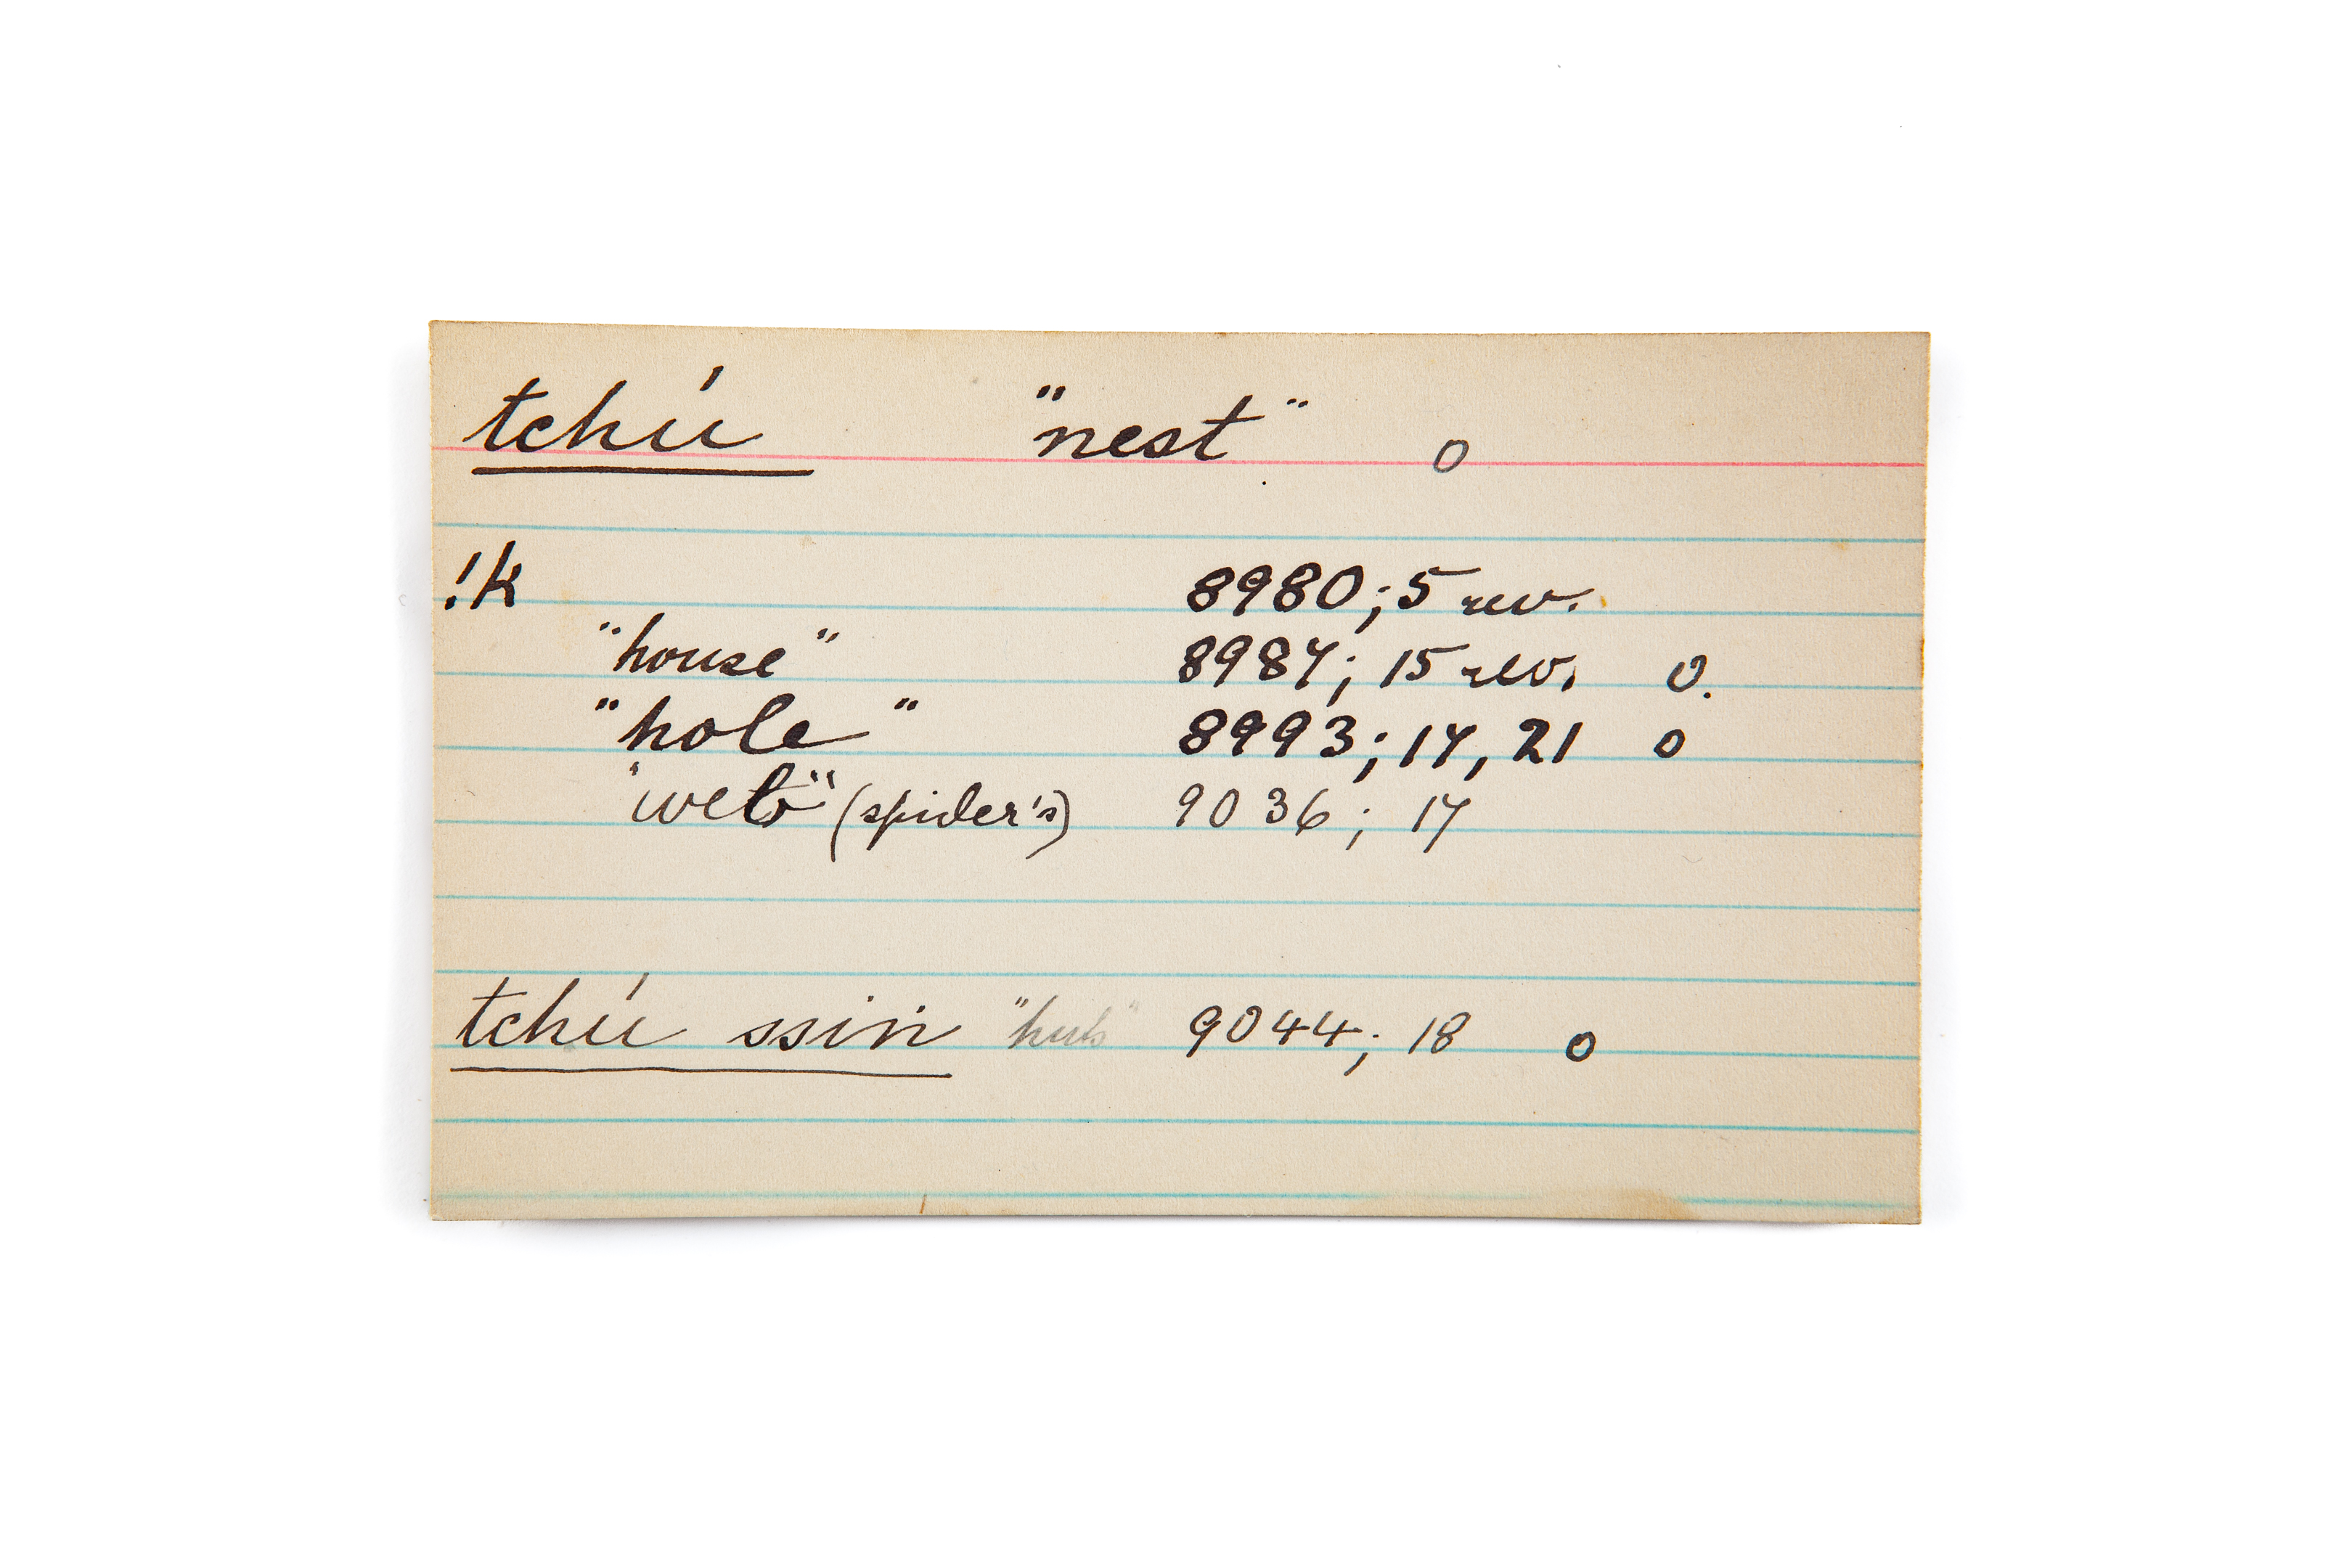 tchú "nest" o
!k 8980; 5 rev.
"house" 8987; 15 rev. o.
"hole" 8993; 17, 21 o
"web" (spider's) 9036; 17
tchú ssiṅ "huts" 9044; 18 o